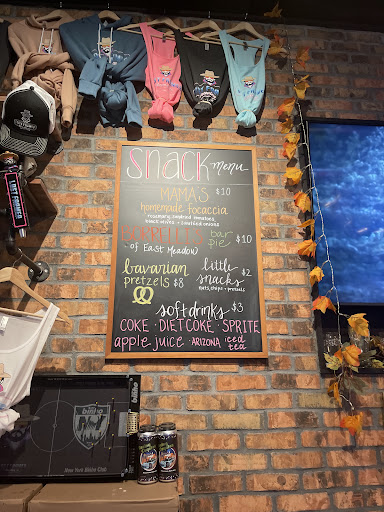 SNACK menu
MAMA'S $10
homemade focaccia
rosemary, sundried tomatoes,
BORRELLI'S bar pie $10
of East Meadow
bavarian pretzels $8
little snacks $2
nuts, chips + pretzels
soft drinks $3
COKE · DIET COKE · SPRITE
apple juice · ARIZONA iced tea
New York Bitiho Club